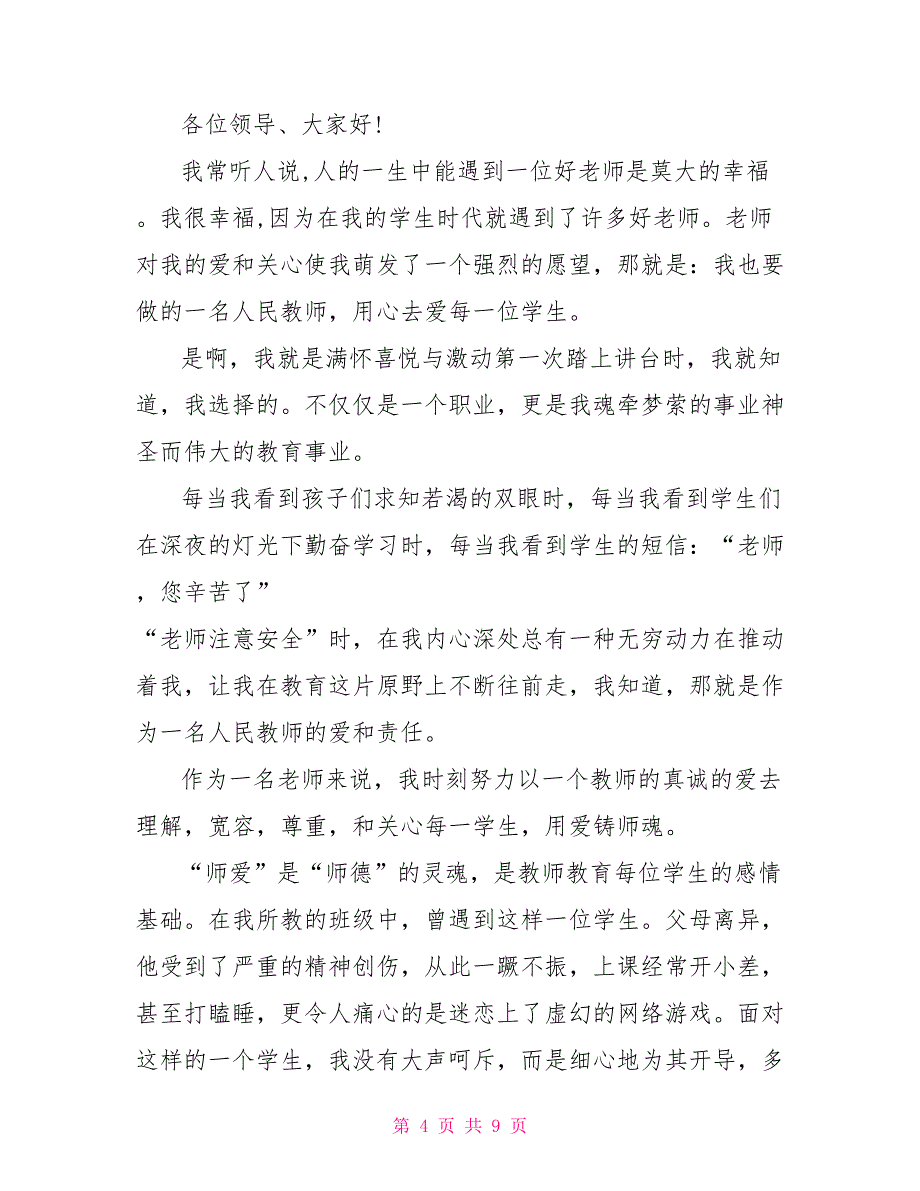 各位领导、大家好!
我常听人说,人的一生中能遇到一位好老师是莫大的幸福
。我很幸福,因为在我的学生时代就遇到了许多好老师。老师
对我的爱和关心使我萌发了一个强烈的愿望，那就是：我也要
做的一名人民教师，用心去爱每一位学生。
是啊，我就是满怀喜悦与激动第一次踏上讲台时，我就知
道，我选择的。不仅仅是一个职业，更是我魂牵梦萦的事业神
圣而伟大的教育事业。
每当我看到孩子们求知若渴的双眼时，每当我看到学生们
在深夜的灯光下勤奋学习时，每当我看到学生的短信：“老师
，您辛苦了”
“老师注意安全”时，在我内心深处总有一种无穷动力在推动
着我，让我在教育这片原野上不断往前走，我知道，那就是作
为一名人民教师的爱和责任。
作为一名老师来说，我时刻努力以一个教师的真诚的爱去
理解，宽容，尊重，和关心每一学生，用爱铸师魂。
“师爱”是“师德”的灵魂，是教师教育每位学生的感情
基础。在我所教的班级中，曾遇到这样一位学生。父母离异，
他受到了严重的精神创伤，从此一蹶不振，上课经常开小差，
甚至打瞌睡，更令人痛心的是迷恋上了虚幻的网络游戏。面对
这样的一个学生，我没有大声呵斥，而是细心地为其开导，多
第 4 页 共 9 页